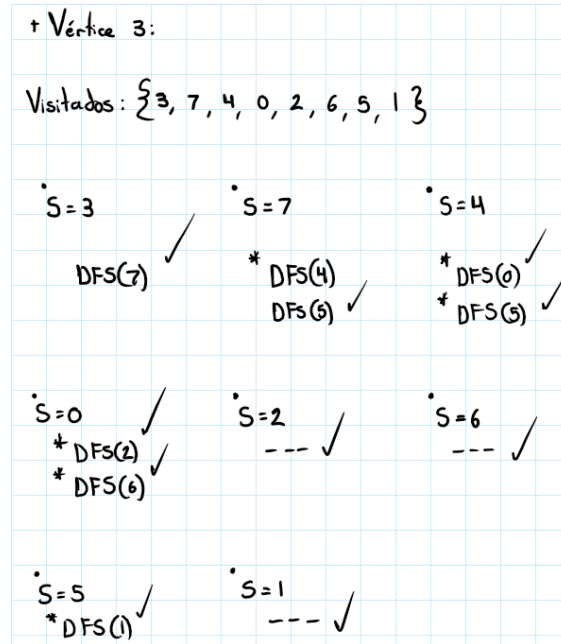 + Vértice 3:
Visitados: {3, 7, 4, 0, 2, 6, 5, 1}
• S=3
DFS(7) ✓
• S=7
* DFS(4)
DFS(5) ✓
• S=4
* DFS(0) ✓
* DFS(5) ✓
• S=0 ✓
* DFS(2) ✓
* DFS(6)
• S=2
--- ✓
• S=6
--- ✓
• S=5
* DFS(1) ✓
• S=1
--- ✓